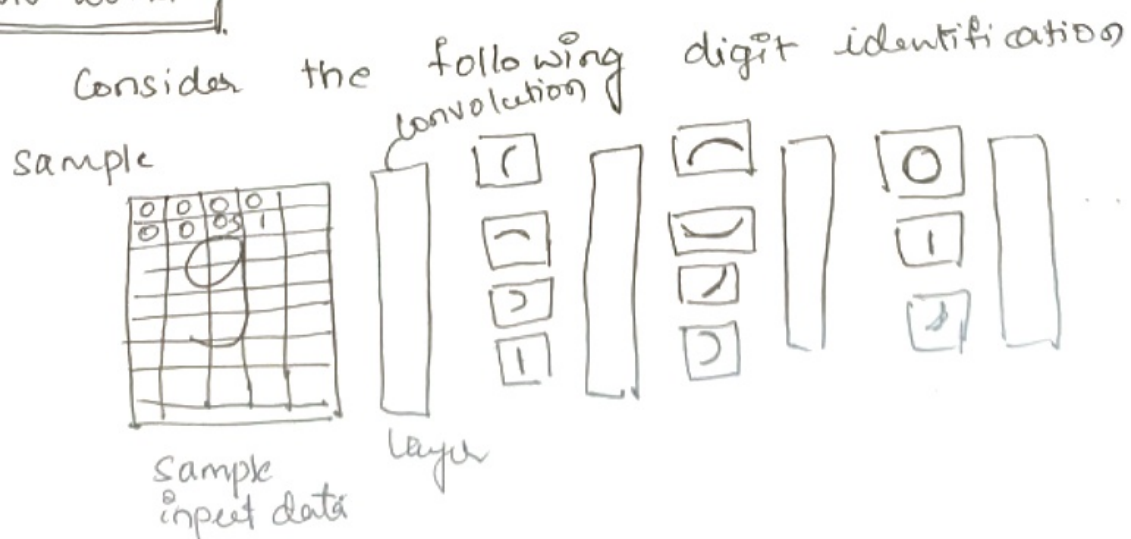 Consider the following digit identification
convolution
sample
0 0 0 0
0 0 0.5 1
layer
sample
input data